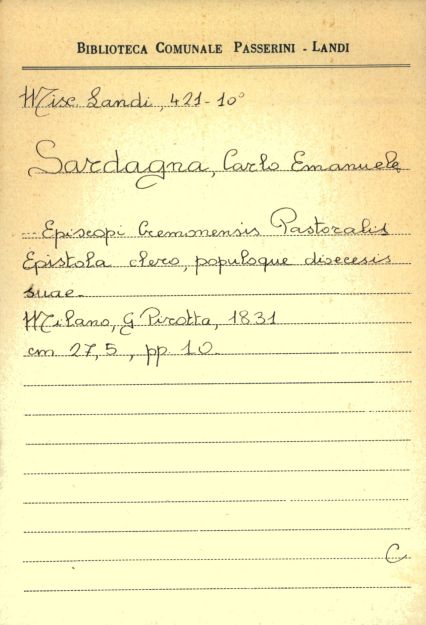 BIBLIOTECA COMUNALE PASSERINI - LANDI
Misc. Landi, 421-10°
Sardagna, Carlo Emanuele
... Episcopi Cremonensis Pastoralis
Epistola clero, populoque dioecesis
suae.
Milano, G. Pirotta, 1831
cm 27,5, pp. 10.
C